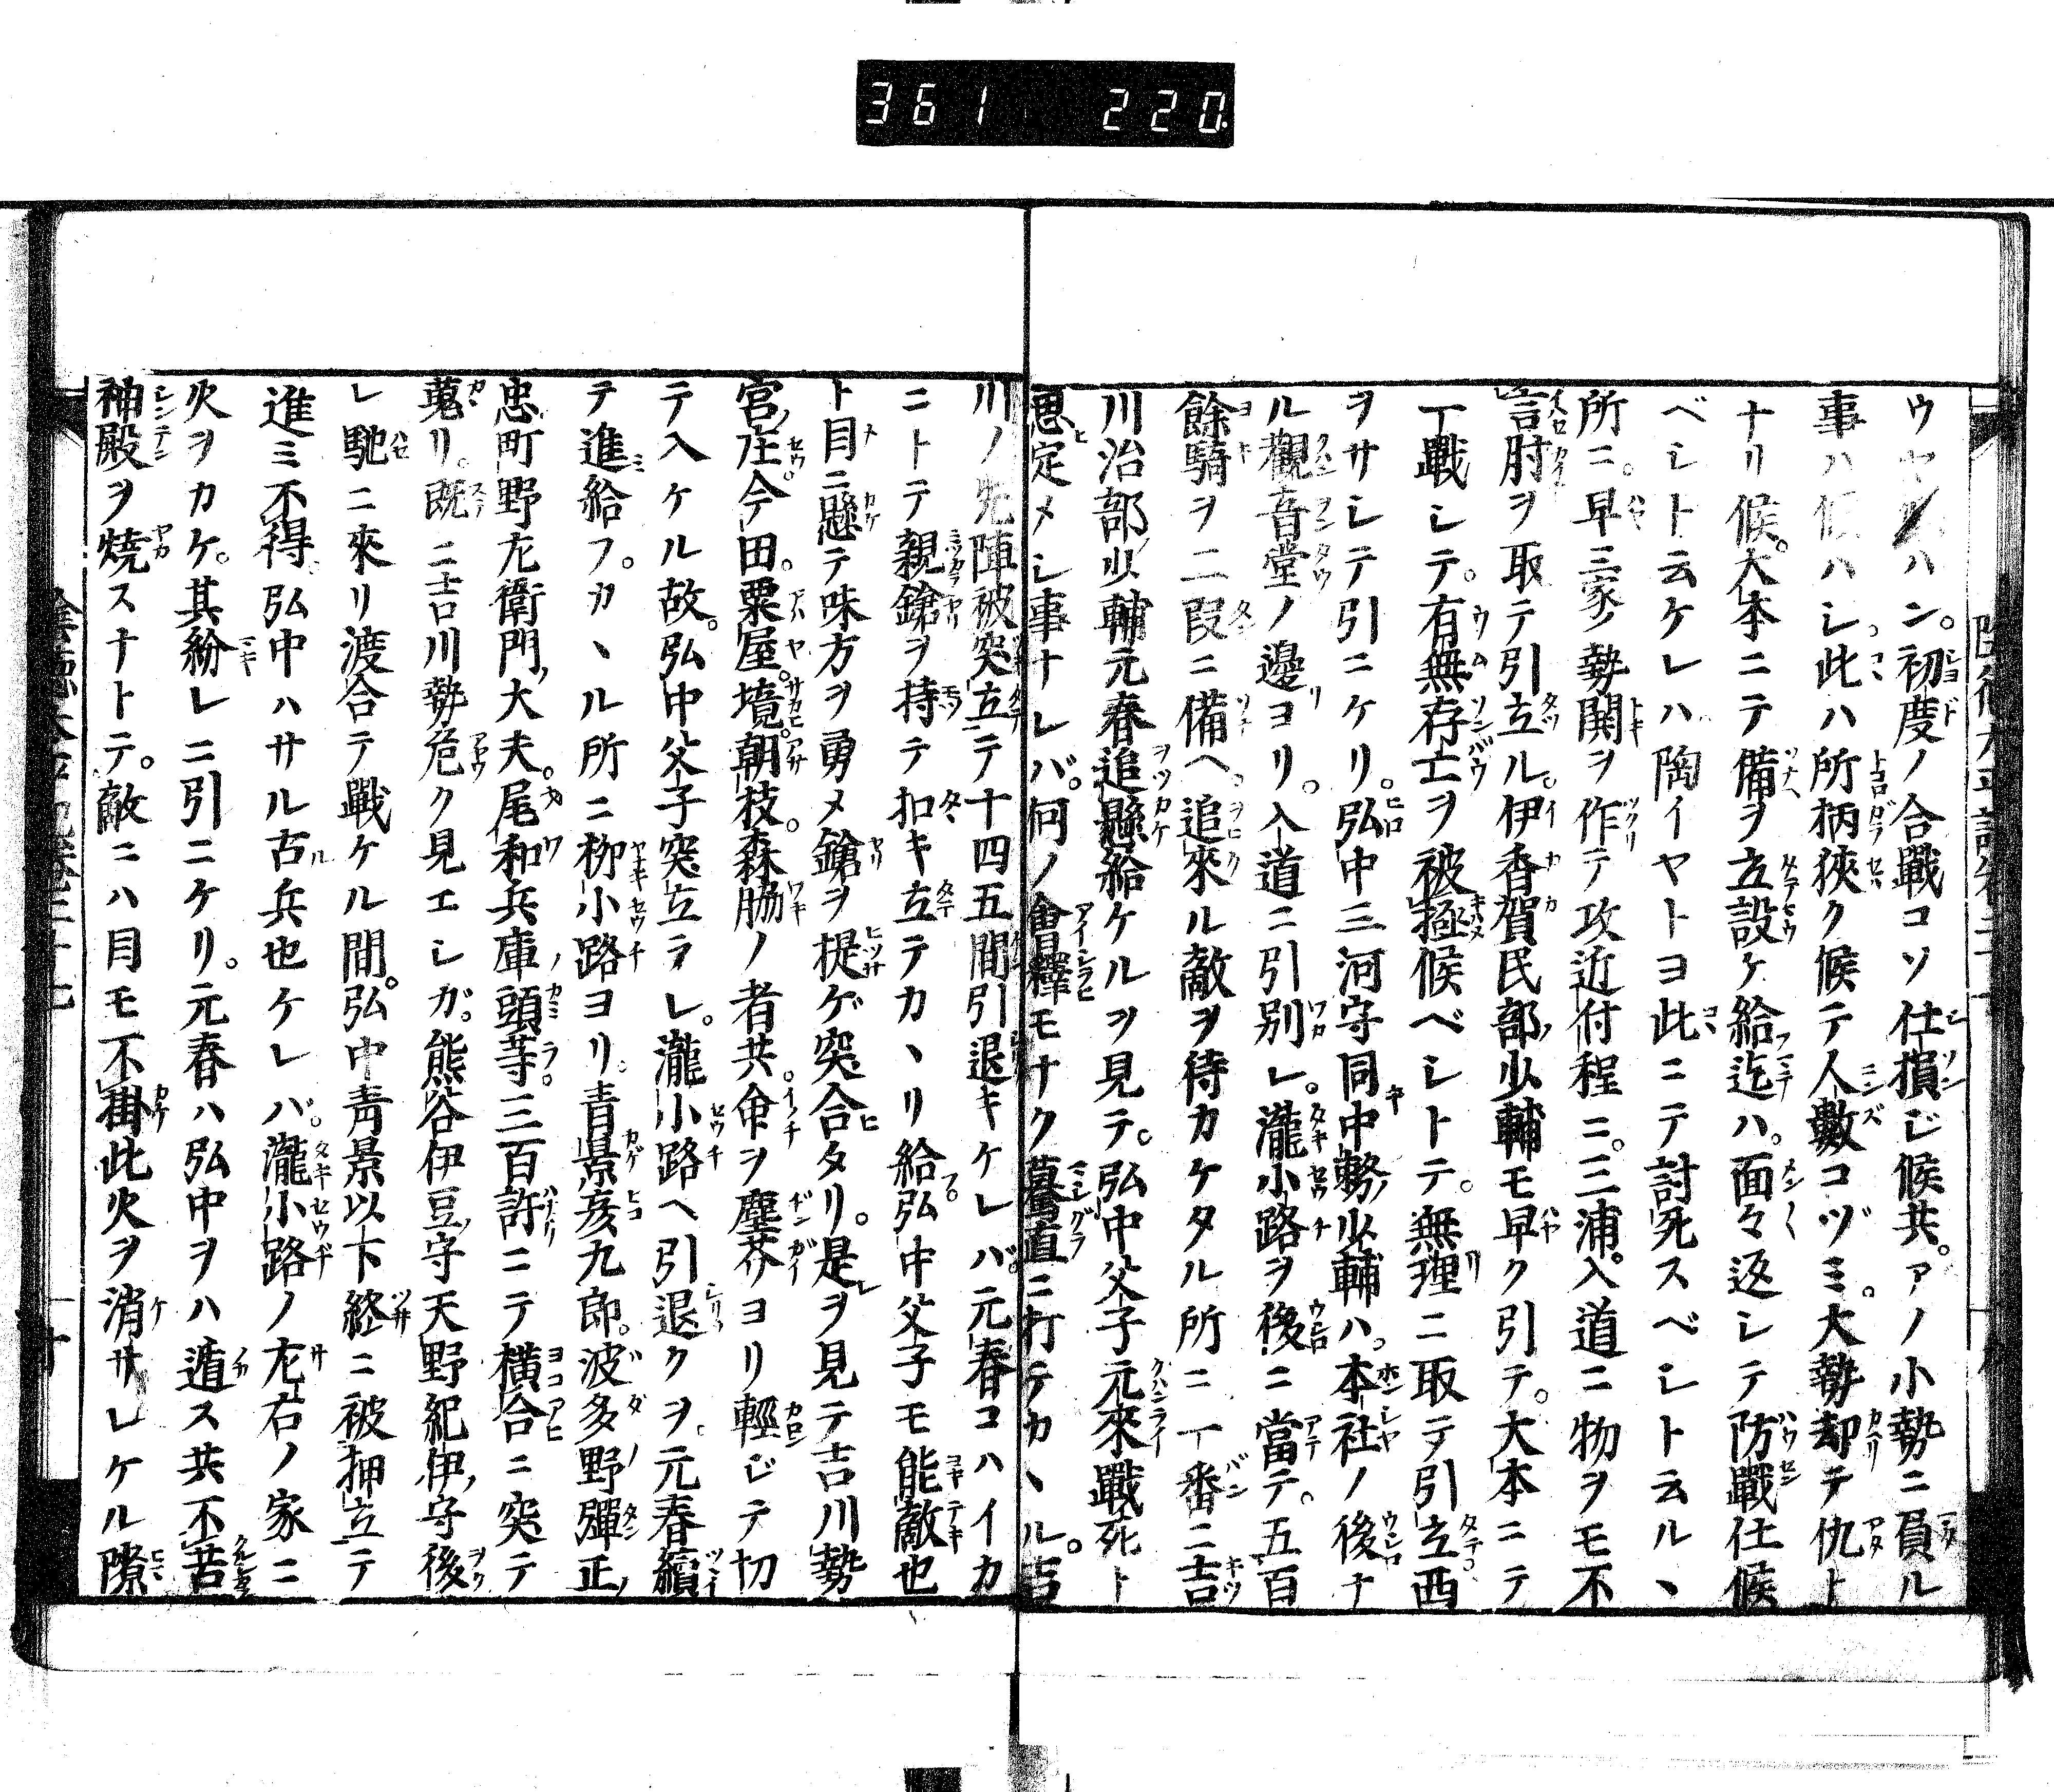 361 220
ウヤハン。初度ノ合戰コソ仕損ジ候共。アノ小勢ニ負ル
事ハ候ハシ。此ハ所柄狹ク候テ人數コヅミ。大勢却テ仇ト
ナリ候。大本ニテ備ヲ立設ケ給迄ハ。面々返シテ防戰仕候
ベシト云ケレハ陶イヤトヨ此ニテ討死スベシト云ルヽ
所ニ。早三家ノ勢鬨ヲ作テ攻近付程ニ。三浦入道ニ物ヲモ不
言肘ヲ取テ引立ル。伊香賀民部少輔モ早ク引テ。大本ニテ
一戰シテ。有無存亡ヲ被極候ベシトテ。無理ニ取テ引立西
ヲサシテ引ニケリ。弘中三河守同中務少輔ハ。本社ノ後ナ
ル觀音堂ノ邊ヨリ。入道ニ引別レ。瀧小路ヲ後ニ當テ。五百
餘騎ヲ二叚ニ備ヘ。追來ル敵ヲ待カケタル所ニ一番ニ吉
川治部少輔元春追懸給ケルヲ見テ。弘中父子元來戰死ト
思定メシ事ナレバ。何ノ會釋モナク驀直ニ打テカヽル。吉
川ノ先陣被突立テ十四五間引退キケレバ。元春コハイカ
ニトテ親鎗ヲ持テ扣キ立テカヽリ給弘中父子モ能敵也
ト目ニ懸テ味方ヲ勇メ鎗ヲ提ゲ突合タリ。是ヲ見テ吉川勢
宮庄。今田。粟屋。境。朝枝。森脇ノ者共。命ヲ塵芥ヨリ輕ジテ切
テ入ケル故。弘中父子突立ラレ。瀧小路ヘ引退クヲ。元春續
テ進給フ。カヽル所ニ栁小路ヨリ。青景亥九郎。波多野彈正
忠町野左衛門大夫。尾和兵庫頭等。三百許ニテ横合ニ突テ
蒐リ。既ニ吉川勢危ク見エシガ。熊谷伊豆守天野紀伊守後
レ馳ニ來リ渡合テ戰ケル間。弘中青景以下終ニ被押立テ
進ミ不得。弘中ハサル古兵也ケレバ。瀧小路ノ左右ノ家ニ
火ヲカケ。其紛レニ引ニケリ。元春ハ弘中ヲハ遁ス共不苦
神殿ヲ燒スナトテ。敵ニハ目モ不掛此火ヲ消サレケル隙